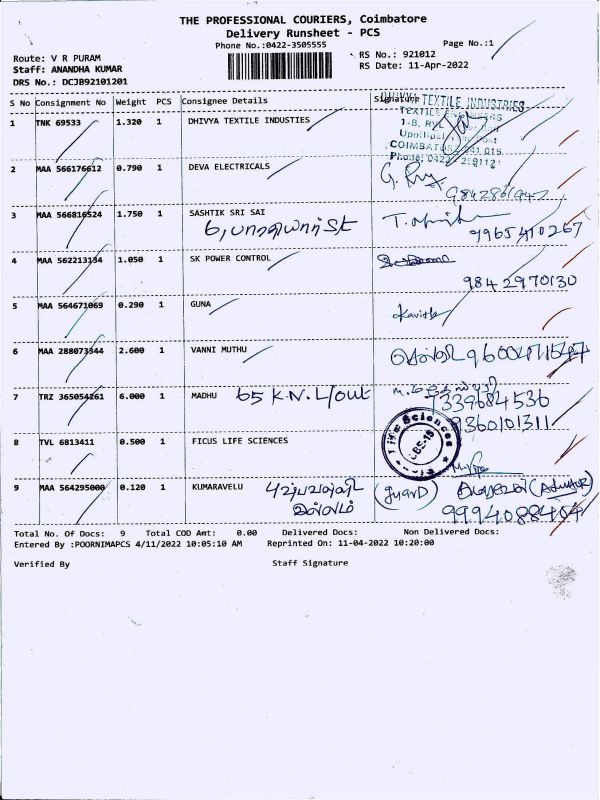 THE PROFESSIONAL COURIERS, Coimbatore
Delivery Runsheet - PCS
Phone No.:0422-3505555
Page No.:1
Route: V R PURAM
Staff: ANANDHA KUMAR
DRS No.: DCJB92101201
RS No.: 921012
RS Date: 11-Apr-2022
S No Consignment No Weight PCS Consignee Details Signature
TEXTILE INDUSTRIES
1 TNK 69533 1.320 1 DHIVYA TEXTILE INDUSTIES
COIMBATORE 641 015
2 MAA 566176612 0.790 1 DEVA ELECTRICALS
3 MAA 566816524 1.750 1 SASHTIK SRI SAI
9965410267
4 MAA 562213134 1.050 1 SK POWER CONTROL
9842970130
5 MAA 564671069 0.290 1 GUNA Kavitha
6 MAA 288073344 2.600 1 VANNI MUTHU
7 TRZ 365054261 6.000 1 MADHU 65 K.N. L/out
9360101311
8 TVL 6813411 0.500 1 FICUS LIFE SCIENCES
Life Sciences
9 MAA 564295000 0.120 1 KUMARAVELU (GuarD)
இல்லம்
Total No. Of Docs: 9 Total COD Amt: 0.00 Delivered Docs: Non Delivered Docs:
Entered By :POORNIMAPCS 4/11/2022 10:05:10 AM Reprinted On: 11-04-2022 10:20:00
Verified By Staff Signature